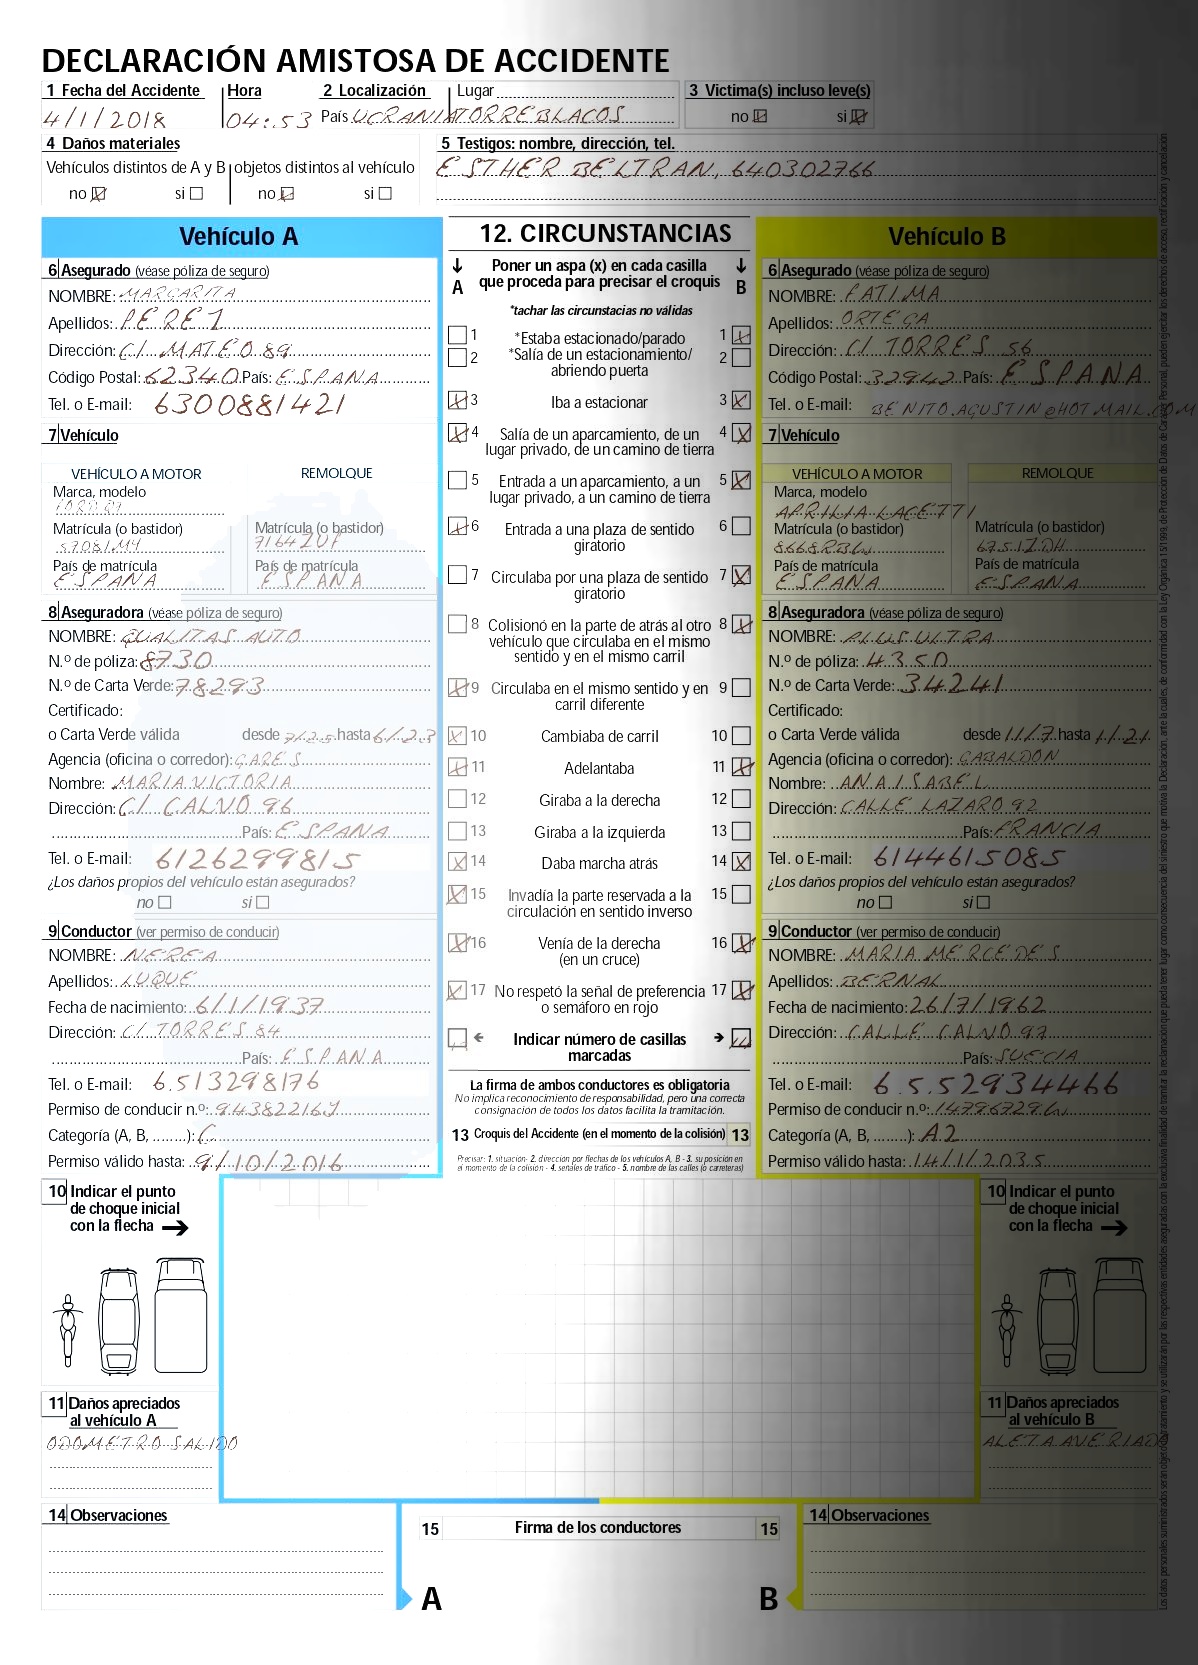 DECLARACIÓN AMISTOSA DE ACCIDENTE
1 Fecha del Accidente Hora 2 Localización Lugar 3 Victima(s) incluso leve(s)
4/1/2018 04:53 País UCRANIA TORREBLACOS no si
4 Daños materiales
Vehículos distintos de A y B objetos distintos al vehículo
no si no si
5 Testigos: nombre, dirección, tel.
ESTHER BELTRAN, 640302766
Vehículo A
6 Asegurado (véase póliza de seguro)
NOMBRE: MARGARITA
Apellidos: PEREZ
Dirección: C/ MATEO 89
Código Postal: 62340 País: ESPANA
Tel. o E-mail: 6300881421
7 Vehículo
VEHÍCULO A MOTOR REMOLQUE
Marca, modelo
Matrícula (o bastidor) Matrícula (o bastidor)
S7081MY 7164ZUF
País de matrícula País de matrícula
ESPANA ESPANA
8 Aseguradora (véase póliza de seguro)
NOMBRE: QUALITAS AUTO
N.º de póliza: 8730
N.º de Carta Verde: 78293
Certificado:
o Carta Verde válida desde 7/2.5 hasta 6/2.3
Agencia (oficina o corredor): GARES
Nombre: MARIA VICTORIA
Dirección: C/ CALVO 96
País: ESPANA
Tel. o E-mail: 6126299815
¿Los daños propios del vehículo están asegurados?
no si
9 Conductor (ver permiso de conducir)
NOMBRE: NEREA
Apellidos: LUQUE
Fecha de nacimiento: 6/1/1937
Dirección: C/ TORRES 84
País: ESPANA
Tel. o E-mail: 6.513298176
Permiso de conducir n.º: 94382216J
Categoría (A, B, ........): C
Permiso válido hasta: 9/10/2016
12. CIRCUNSTANCIAS
A Poner un aspa (x) en cada casilla que proceda para precisar el croquis B
*tachar las circunstacias no válidas
1 *Estaba estacionado/parado 1
2 *Salía de un estacionamiento/ 2
abriendo puerta
3 Iba a estacionar 3
4 Salía de un aparcamiento, de un 4
lugar privado, de un camino de tierra
5 Entrada a un aparcamiento, a un 5
lugar privado, a un camino de tierra
6 Entrada a una plaza de sentido 6
giratorio
7 Circulaba por una plaza de sentido 7
giratorio
8 Colisionó en la parte de atrás al otro 8
vehículo que circulaba en el mismo
sentido y en el mismo carril
9 Circulaba en el mismo sentido y en 9
carril diferente
10 Cambiaba de carril 10
11 Adelantaba 11
12 Giraba a la derecha 12
13 Giraba a la izquierda 13
14 Daba marcha atrás 14
15 Invadía la parte reservada a la 15
circulación en sentido inverso
16 Venía de la derecha 16
(en un cruce)
17 No respetó la señal de preferencia 17
o semáforo en rojo
Indicar número de casillas
marcadas
La firma de ambos conductores es obligatoria
No implica reconocimiento de responsabilidad, pero una correcta
consignacion de todos los datos facilita la tramitación.
13 Croquis del Accidente (en el momento de la colisión) 13
Precisar: 1. situación- 2. dirección por flechas de los vehículos A, B - 3. su posición en
el momento de la colisión - 4. señales de tráfico - 5. nombre de las calles (o carreteras)
Vehículo B
6 Asegurado (véase póliza de seguro)
NOMBRE: FATIMA
Apellidos: ORTEGA
Dirección: C/ TORRES 56
Código Postal: 32942 País: ESPANA
Tel. o E-mail: BENITO.AGUSTIN@HOTMAIL.COM
7 Vehículo
VEHÍCULO A MOTOR REMOLQUE
Marca, modelo
APRILIA LACETTI
Matrícula (o bastidor) Matrícula (o bastidor)
8668RBW 6751ZDH
País de matrícula País de matrícula
ESPANA ESPANA
8 Aseguradora (véase póliza de seguro)
NOMBRE: PLUS ULTRA
N.º de póliza: 4350
N.º de Carta Verde: 34241
Certificado:
o Carta Verde válida desde 11/7 hasta 1/21
Agencia (oficina o corredor): GABALDON
Nombre: ANA ISABEL
Dirección: CALLE LAZARO 92
País: FRANCIA
Tel. o E-mail: 6144615085
¿Los daños propios del vehículo están asegurados?
no si
9 Conductor (ver permiso de conducir)
NOMBRE: MARIA MERCEDES
Apellidos: BERNAL
Fecha de nacimiento: 26/7/1962
Dirección: CALLE CALVO 97
País: SUECIA
Tel. o E-mail: 6.5.52934466
Permiso de conducir n.º: 14796729W
Categoría (A, B, ........): A2
Permiso válido hasta: 14/1/2035
10 Indicar el punto
de choque inicial
con la flecha
11 Daños apreciados
al vehículo A
ODOMETRO SALIDO
10 Indicar el punto
de choque inicial
con la flecha
11 Daños apreciados
al vehículo B
ALETA AVERIADA
14 Observaciones
15 Firma de los conductores 15
A B
14 Observaciones